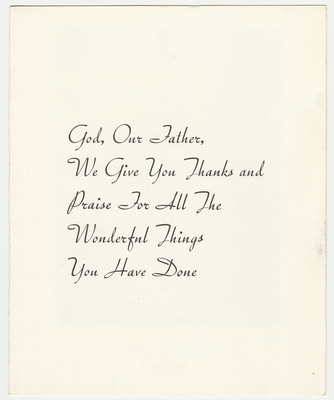 God, Our Father,
We Give You Thanks and
Praise For All The
Wonderful Things
You Have Done